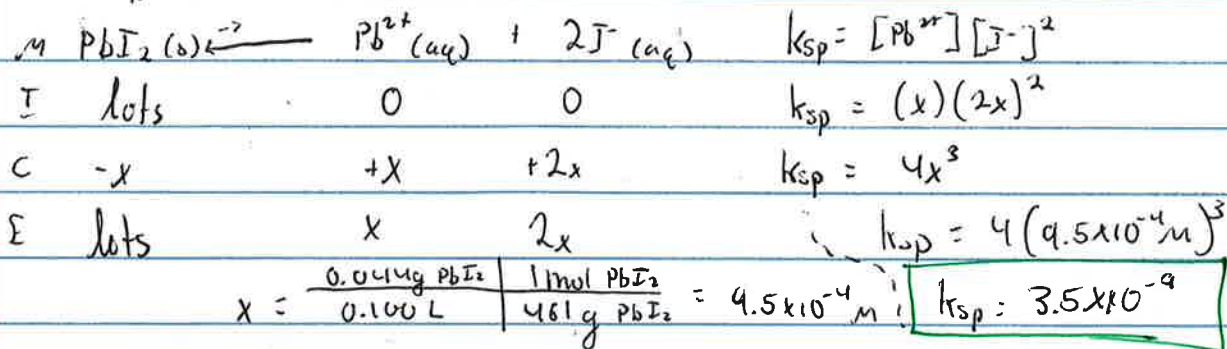 M PbI₂(s) ⇌ Pb²⁺(aq) + 2I⁻(aq) Ksp = [Pb²⁺][I⁻]²
I lots 0 0 Ksp = (x)(2x)²
C -x +x +2x Ksp = 4x³
E lots x 2x Ksp = 4(9.5x10⁻⁴M)³
x = 0.044g PbI₂ / 0.100 L | 1mol PbI₂ / 461g PbI₂ = 9.5x10⁻⁴M Ksp = 3.5x10⁻⁹